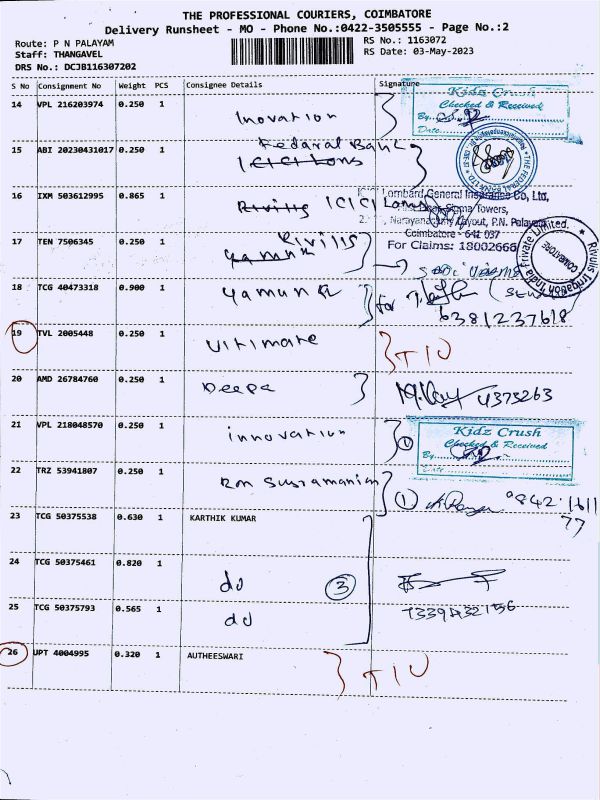 THE PROFESSIONAL COURIERS, COIMBATORE
Delivery Runsheet - MO - Phone No.:0422-3505555 - Page No.:2
Route: P N PALAYAM
RS No.: 1163072
Staff: THANGAVEL
RS Date: 03-May-2023
DRS No.: DCJB116307202
S No Consignment No Weight PCS Consignee Details Signature
14 VPL 216203974 0.250 1 Inovation
Kidz Crush
Checked & Received
By
Date
15 ABI 20230431017 0.250 1 Fedaral Bank
ICICI Lom
THE FEDERAL BANK LTD.
16 IXM 503612995 0.865 1 Rivilis ICICI Lom
Lombard General Insurance Co, Ltd,
Towers,
Layout, P.N. Palayam
Coimbatore - 641 037
For Claims: 18002666
17 TEN 7506345 0.250 1 Rivilis
Yamuna
Rivulis Irrigation India Private Limited.
COIMBATORE
18 TCG 40473318 0.900 1 Yamuna
for
6381237618
19 TVL 2005448 0.250 1 Ultimate TIU
20 AMD 26784760 0.250 1 Deepa
4375263
21 VPL 218048570 0.250 1 innovation 1
Kidz Crush
Checked & Received
By
Date
22 TRZ 53941807 0.250 1 Ram Subramaniam 1
9842.1611
77
23 TCG 50375538 0.630 1 KARTHIK KUMAR
24 TCG 50375461 0.820 1 do 3
25 TCG 50375793 0.565 1 do
7339432156
26 UPT 4004995 0.320 1 AUTHEESWARI TIU